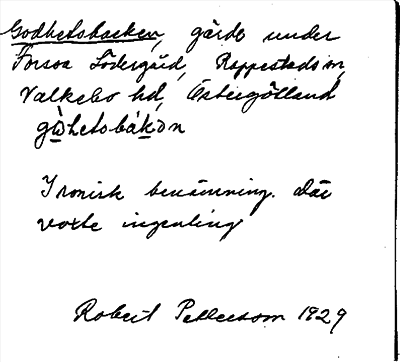 Godhetsbacken, gärde under
Forsva Södergård, Rappestads sn,
Valkebo hd, Östergötland
gòhetsbákən
Ironisk benämning. Där
växte ingenting
Robert Pettersson 1929